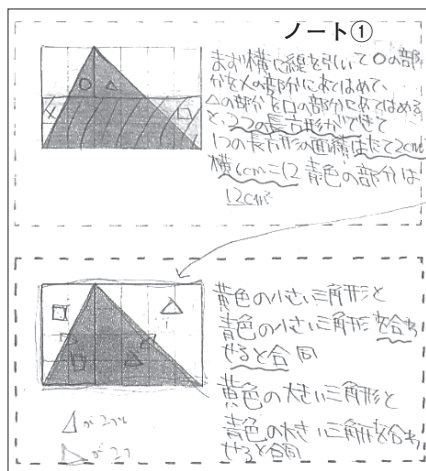 ノート①
まず横に線を引いて○の部
分を×の部分にあてはめて、
△の部分を□の部分にあてはめる
と、2つの長方形ができて
1つの長方形の面積はたて2cm
横6cm=12 青色の部分は
12cm²
○
△
×
□
黄色の小さい三角形と
青色の小さい三角形を合わ
せると合同
黄色の大きい三角形と
青色の大きい三角形を合わ
せると合同
□
△
□
△
が2つ
が2つ